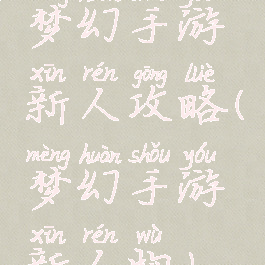 梦幻手游
xīn rén gōng lüè
新人攻略(
mèng huàn shǒu yóu
梦幻手游
xīn rén wù
新人物)